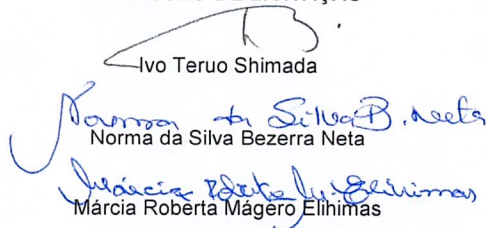 Ivo Teruo Shimada
Norma da Silva B. Neta
Norma da Silva Bezerra Neta
Márcia Roberta M. Elihimas
Márcia Roberta Mágero Elihimas